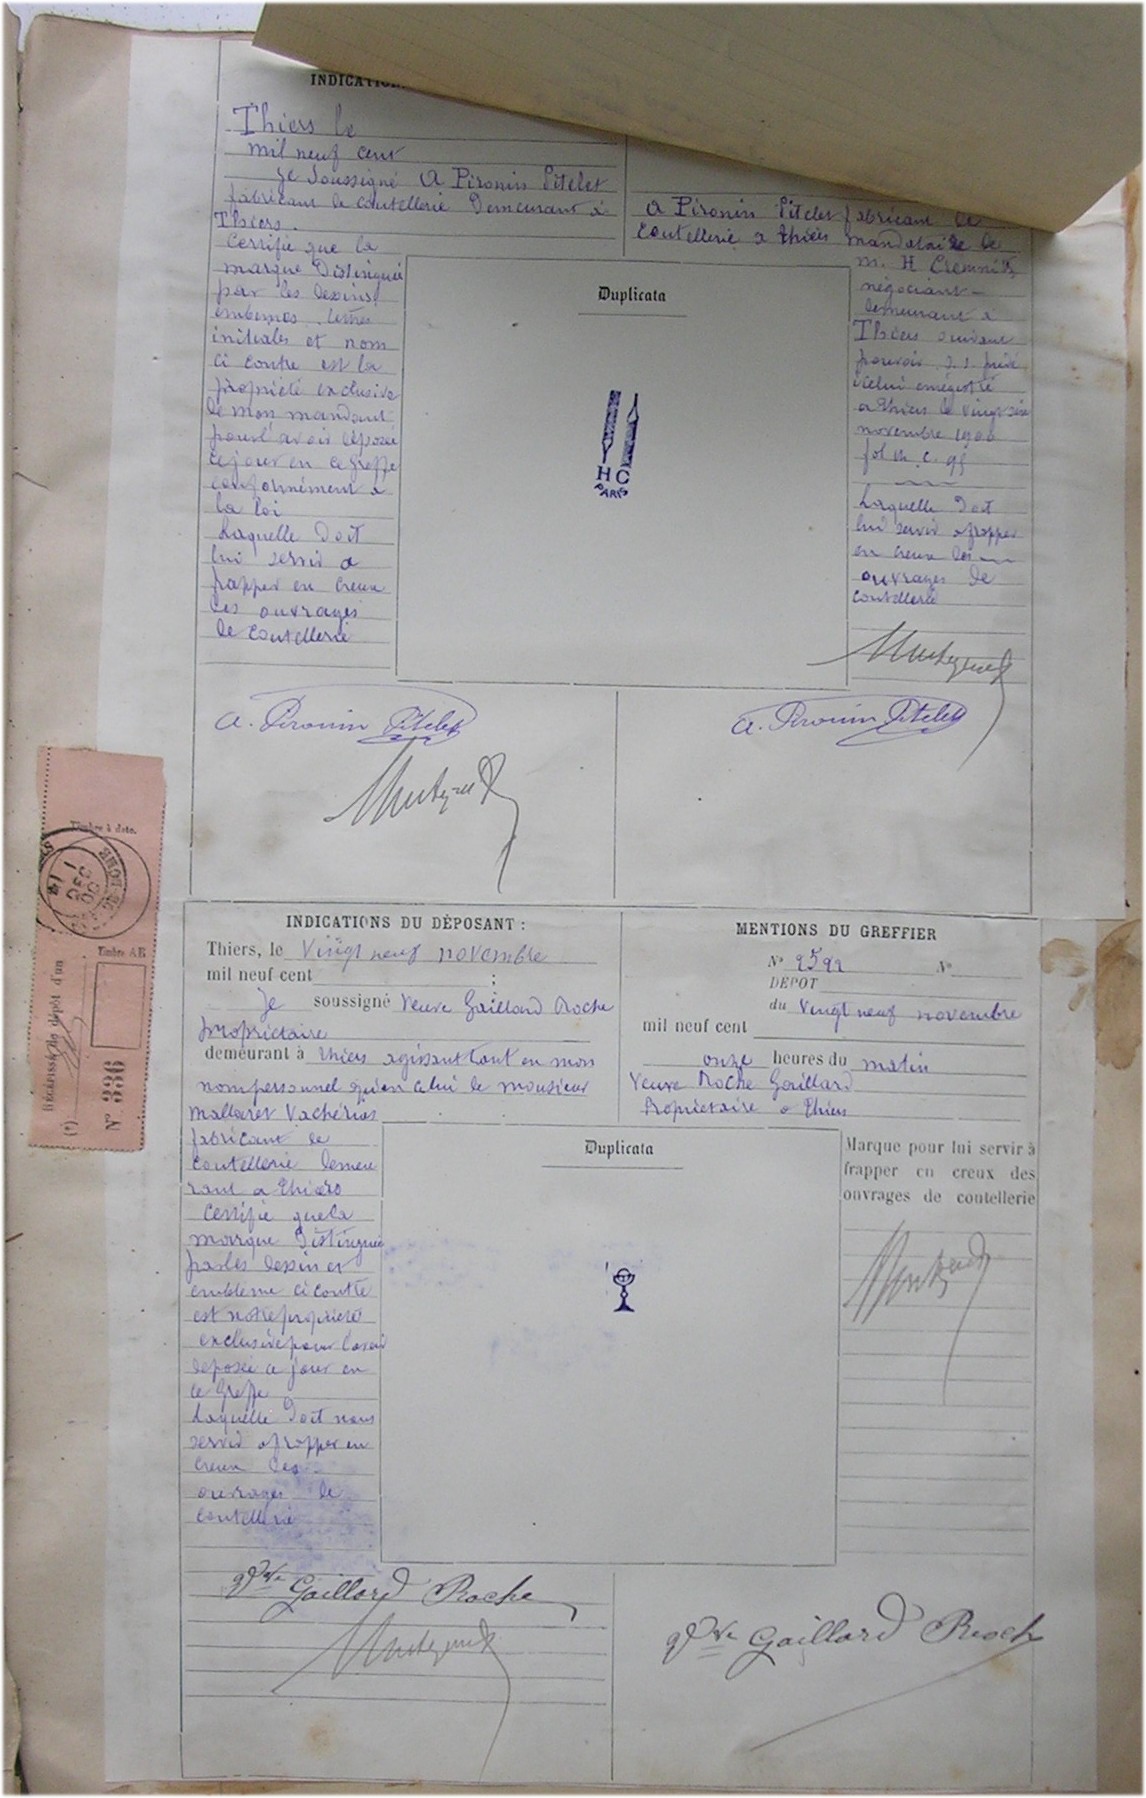 Thiers le
mil neuf cent
Je soussigné A Pironin Pitelet
fabricant de coutellerie Demeurant à
Thiers.
Certifie que la
marque Distinguée
par les dessins
emblemes, lettres
initiales et nom
ci contre est la
propriété exclusive
de mon mandant
pour l'avoir déposée
ce jour en ce Greffe
conformément a
la loi
Laquelle Doit
lui servir a
frapper en creux
Les ouvrages
de coutellerie
A. Pironin Pitelet
Duplicata
HC
PARIS
A Pironin Pitelet fabricant de
coutellerie a thiers mandataire de
m. H Cremnitz
négociant
demeurant à
Thiers suivant
pouvoir s. s. privé
icelui enregistré
a thiers le vingt six
novembre 1900
fol
Laquelle Doit
lui servir a frapper
en creux les
ouvrages de
coutellerie
A. Pironin Pitelet
Timbre à date.
PUY-DE-DOME
DEC
00
Timbre AR
Récépissé du dépôt d'un
(1)
N° 336
INDICATIONS DU DÉPOSANT :
Thiers, le Vingt neuf novembre
mil neuf cent ;
Je soussigné Veuve Gaillard Roche
propriétaire
demeurant à thiers agissant tant en mon
nom personnel qu'en celui de monsieur
Mallaret Vachérias
fabricant de
coutellerie demeu
rant a thiers
Certifie que la
marque Distinguée
par les dessin et
embleme ci contre
est notre propriété
exclusive pour l'avoir
déposée ce jour en
ce Greffe
Laquelle Doit nous
servir a frapper en
creux Les
ouvrages de
coutellerie
Vve Gaillard Roche
Duplicata
MENTIONS DU GREFFIER
N° 2592 N°
DÉPOT
du vingt neuf novembre
mil neuf cent
onze heures du matin
Veuve Roche Gaillard
Propriétaire a thiers
Marque pour lui servir à
frapper en creux des
ouvrages de coutellerie
Vve Gaillard Roch